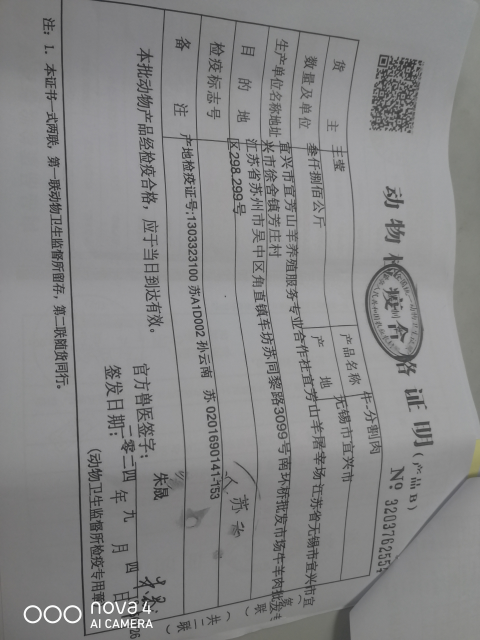 动物检疫合格证明(产品B)
№ 3203762554
货主 王莹 产品名称 牛-分割肉
数量及单位 叁仟捌佰公斤 产地 无锡市宜兴市
生产单位名称地址 宜兴市宜芳山羊养殖服务专业合作社宜芳山羊屠宰场江苏省无锡市宜兴市宜
兴市徐舍镇芳庄村
目的地 江苏省苏州市吴中区甪直镇车坊苏同黎路3099号南环桥批发市场牛羊肉批发
区298.299号
检疫标志号
备注 产地检疫证号:1303323100 苏A1D002 孙云南 苏 0201690141-153
本批动物产品经检疫合格，应于当日到达有效。
官方兽医签字： 朱晟
签发日期：二零二四年 九 月 四 日
(动物卫生监督所检疫专用章
注：1. 本证书一式两联，第一联动物卫生监督所留存，第二联随货同行。
nova 4
AI CAMERA